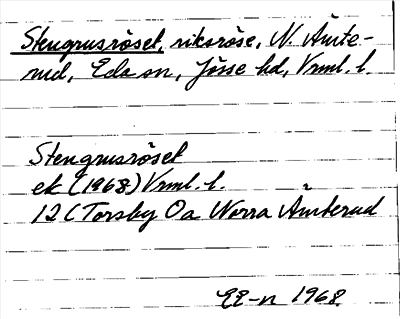 Stengrusröset, riksröse, N. Ämte-
rud, Eda sn, Jösse hd, Vrml. l.
Stengrusröset
ek (1968) Vrml. l.
12C Torsby Oa Norra Ämterud
EE-n 1968